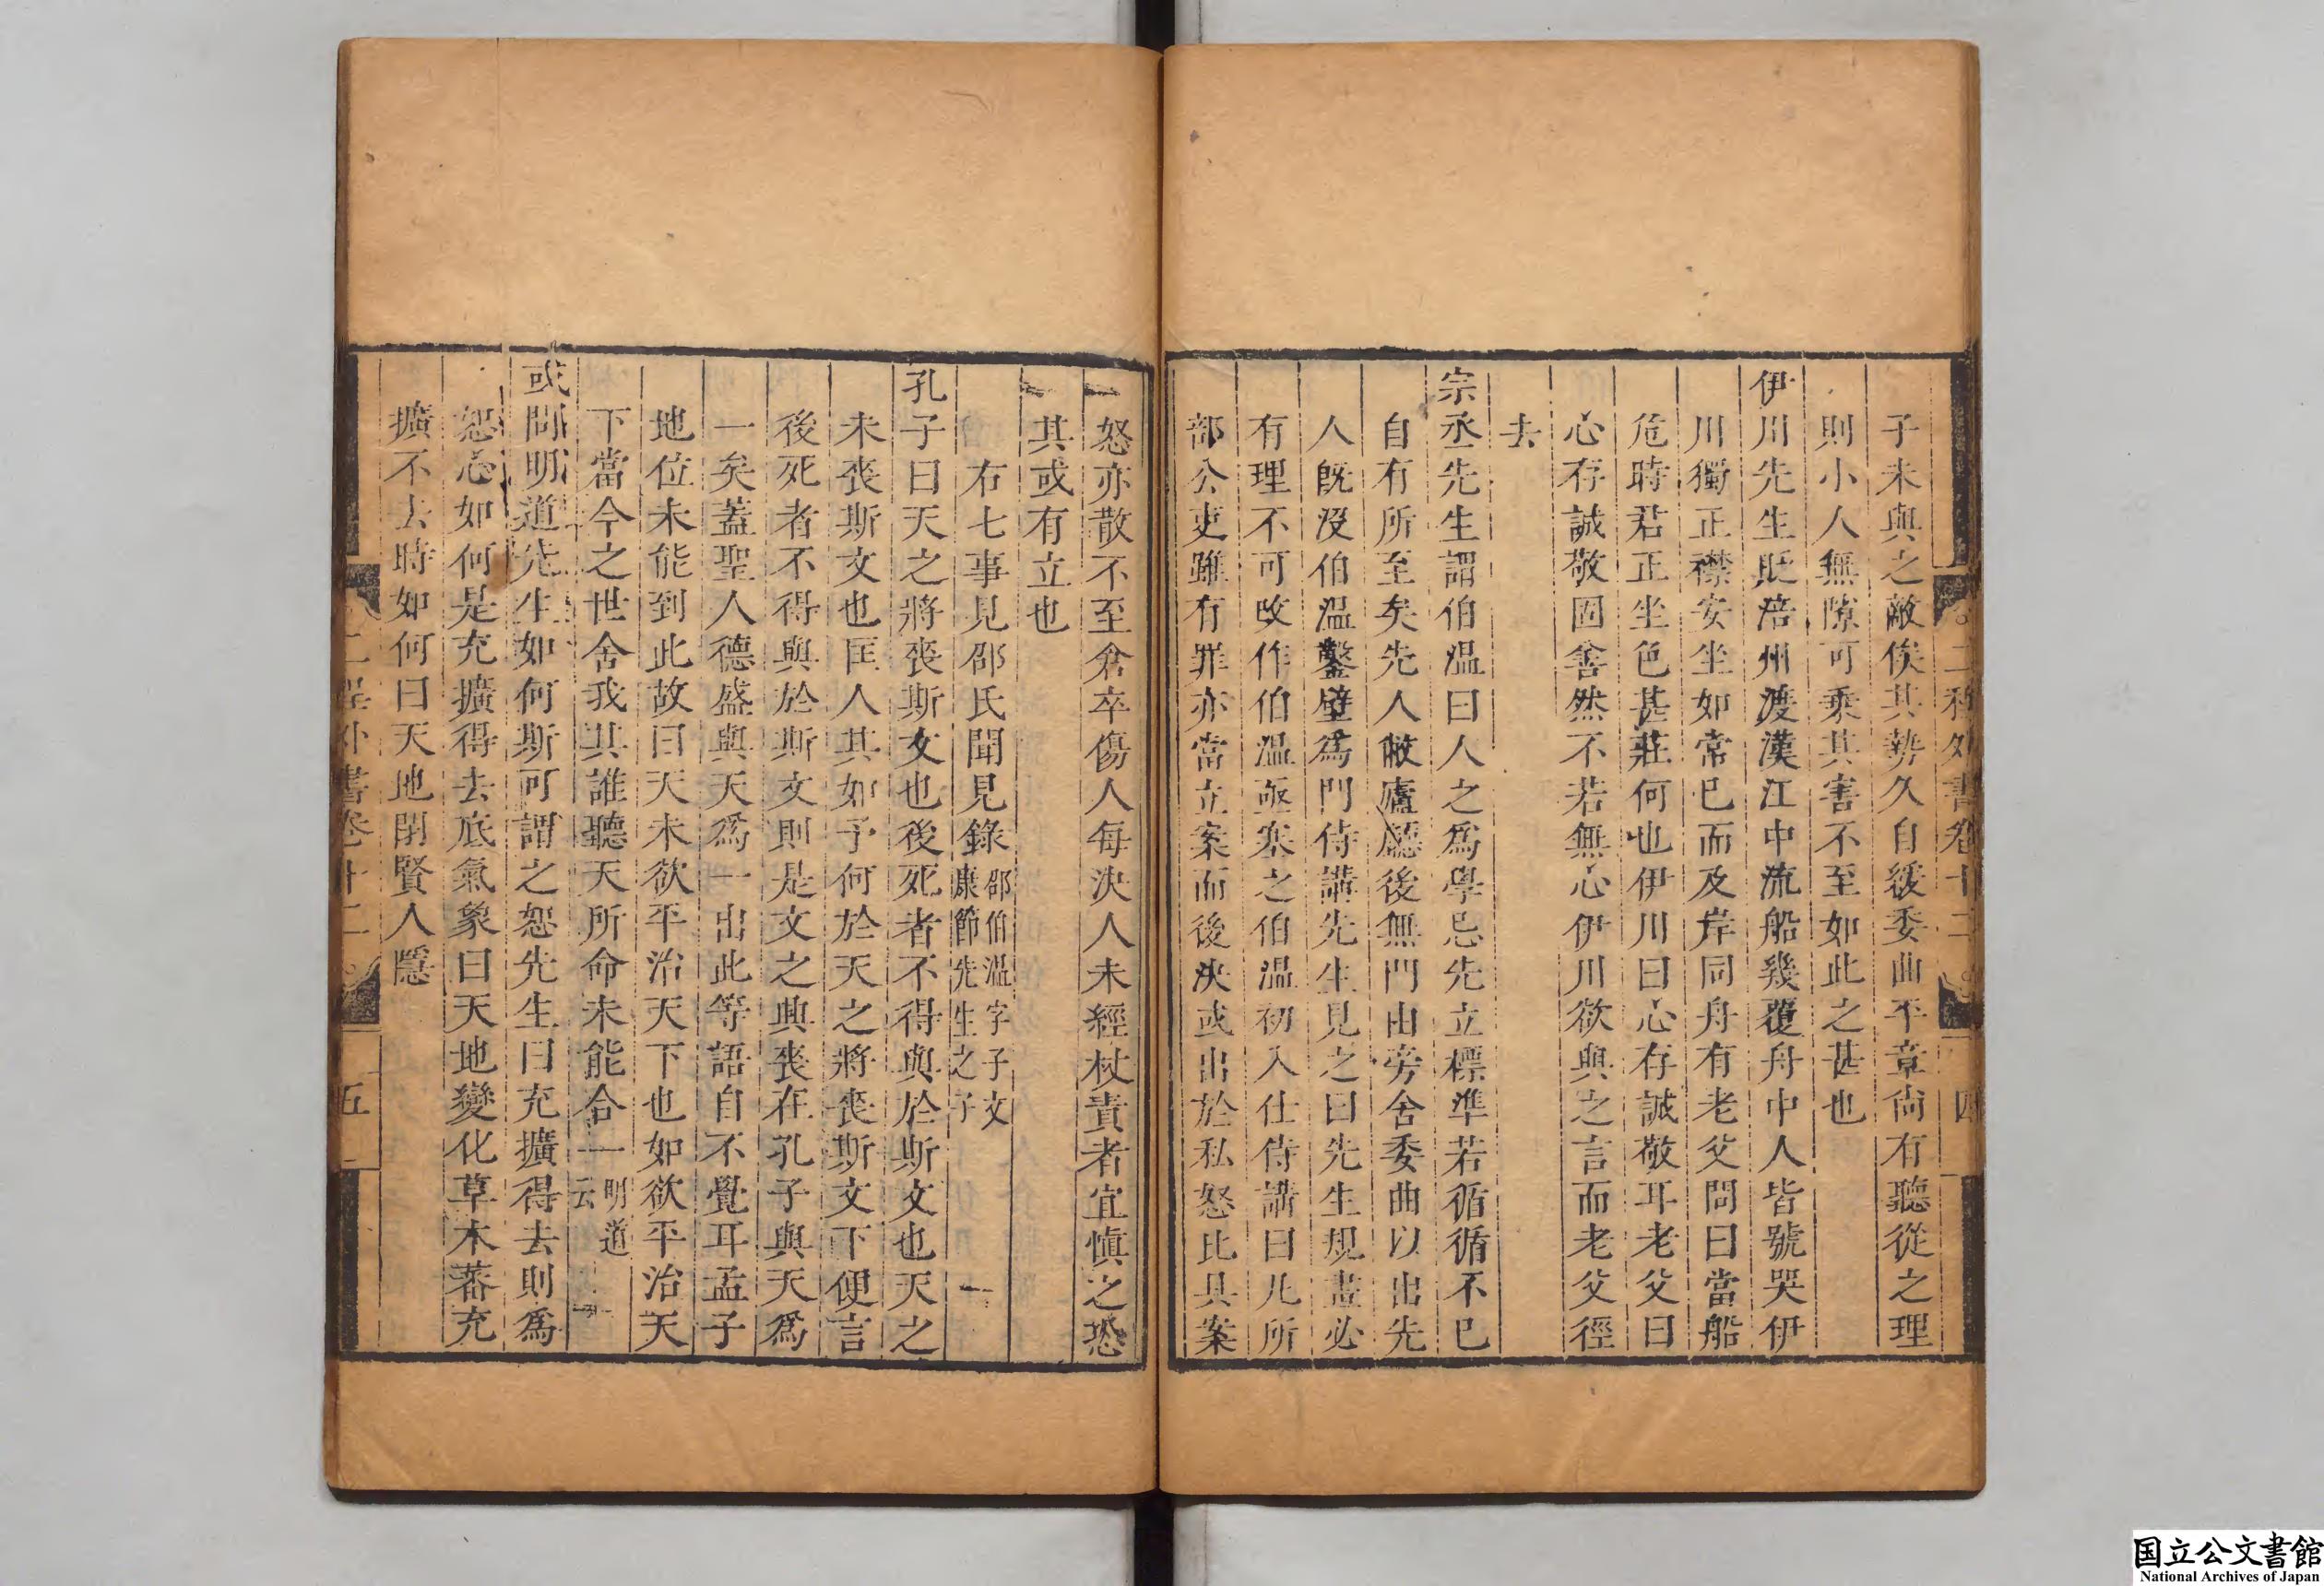 二程外書卷十二
四
子未與之敵俟其勢久自緩委曲平章尙有聽從之理
則小人無隙可乘其害不至如此之甚也
伊川先生貶涪州渡漢江中流船幾覆舟中人皆號哭伊
川獨正襟安坐如常已而及岸同舟有老父問曰當船
危時君正坐色甚莊何也伊川曰心存誠敬耳老父曰
心存誠敬固善然不若無心伊川欲與之言而老父徑
去
宗丞先生謂伯温曰人之爲學忌先立標準若循循不已
自有所至矣先人敝廬廳後無門由旁舍委曲以出先
人既沒伯温鑿壁爲門侍講先生見之曰先生規畫必
有理不可改作伯温亟塞之伯温初入仕侍講曰凡所
部公吏雖有罪亦當立案而後決或出於私怒比具案
怒亦散不至倉卒傷人每決人未經杖責者宜愼之恐
其或有立也
右七事見邵氏聞見錄邵伯温字子文康節先生之子
孔子曰天之將喪斯文也後死者不得與於斯文也天之
未喪斯文也匡人其如予何於天之將喪斯文下便言
後死者不得與於斯文則是文之興喪在孔子與天爲
一矣蓋聖人德盛與天爲一出此等語自不覺耳孟子
地位未能到此故曰天未欲平治天下也如欲平治天
下當今之世舍我其誰聽天所命未能合一明道云
或問明道先生如何斯可謂之恕先生曰充擴得去則爲
恕心如何是充擴得去底氣象曰天地變化草木蕃充
擴不去時如何曰天地閉賢人隱
二程外書卷十二
五
国立公文書館
National Archives of Japan